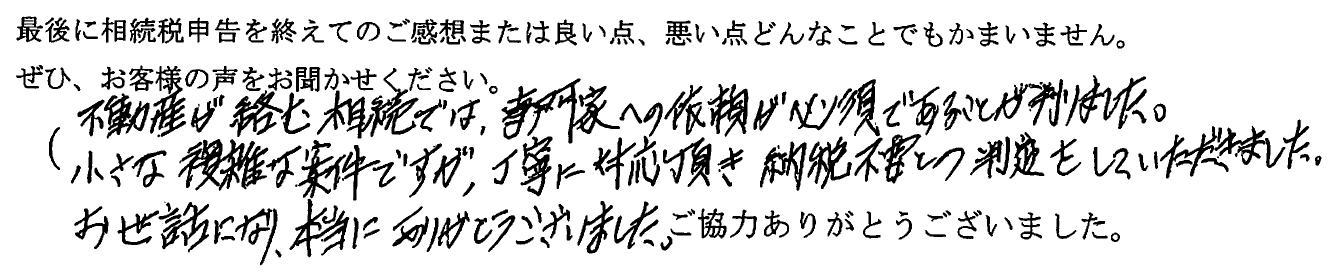 最後に相続税申告を終えてのご感想または良い点、悪い点どんなことでもかまいません。
ぜひ、お客様の声をお聞かせください。
不動産が絡む相続では、専門家への依頼が必須であることが判りました。
(小さな複雑な案件ですが、丁寧に対応頂き納税不要との判定をしていただきました。
お世話になり、本当にありがとうございました。ご協力ありがとうございました。